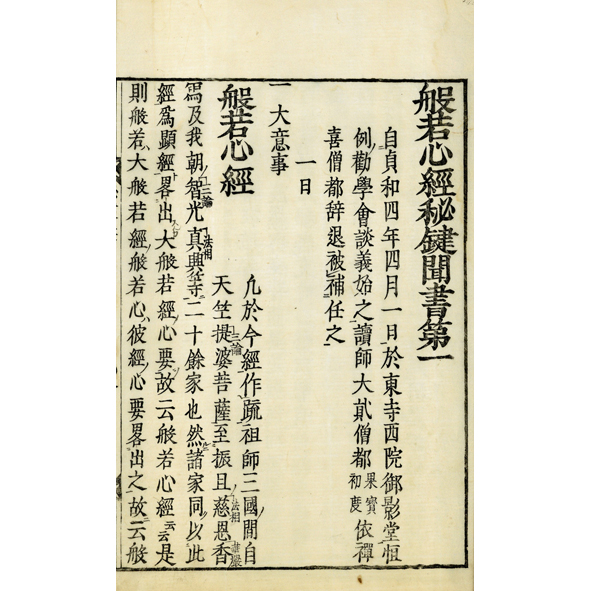 般若心經秘鍵聞書第一
自貞和四年四月一日於東寺西院御影堂恒
例勸學會談義始之讀師大貳僧都果寳初度依禪
喜僧都辞退被補任之
一日
一大意事
般若心經
凢於今經作䟽祖師三國間自
天竺提婆菩薩三論至振旦慈恩法相香
䓁及我朝智光三論真興法相䓁二十餘家也然諸家同以此
經為顯經畧出大般若經心要故云般若心經云云是
則般若大般若經般若心彼經心要畧出之故云般